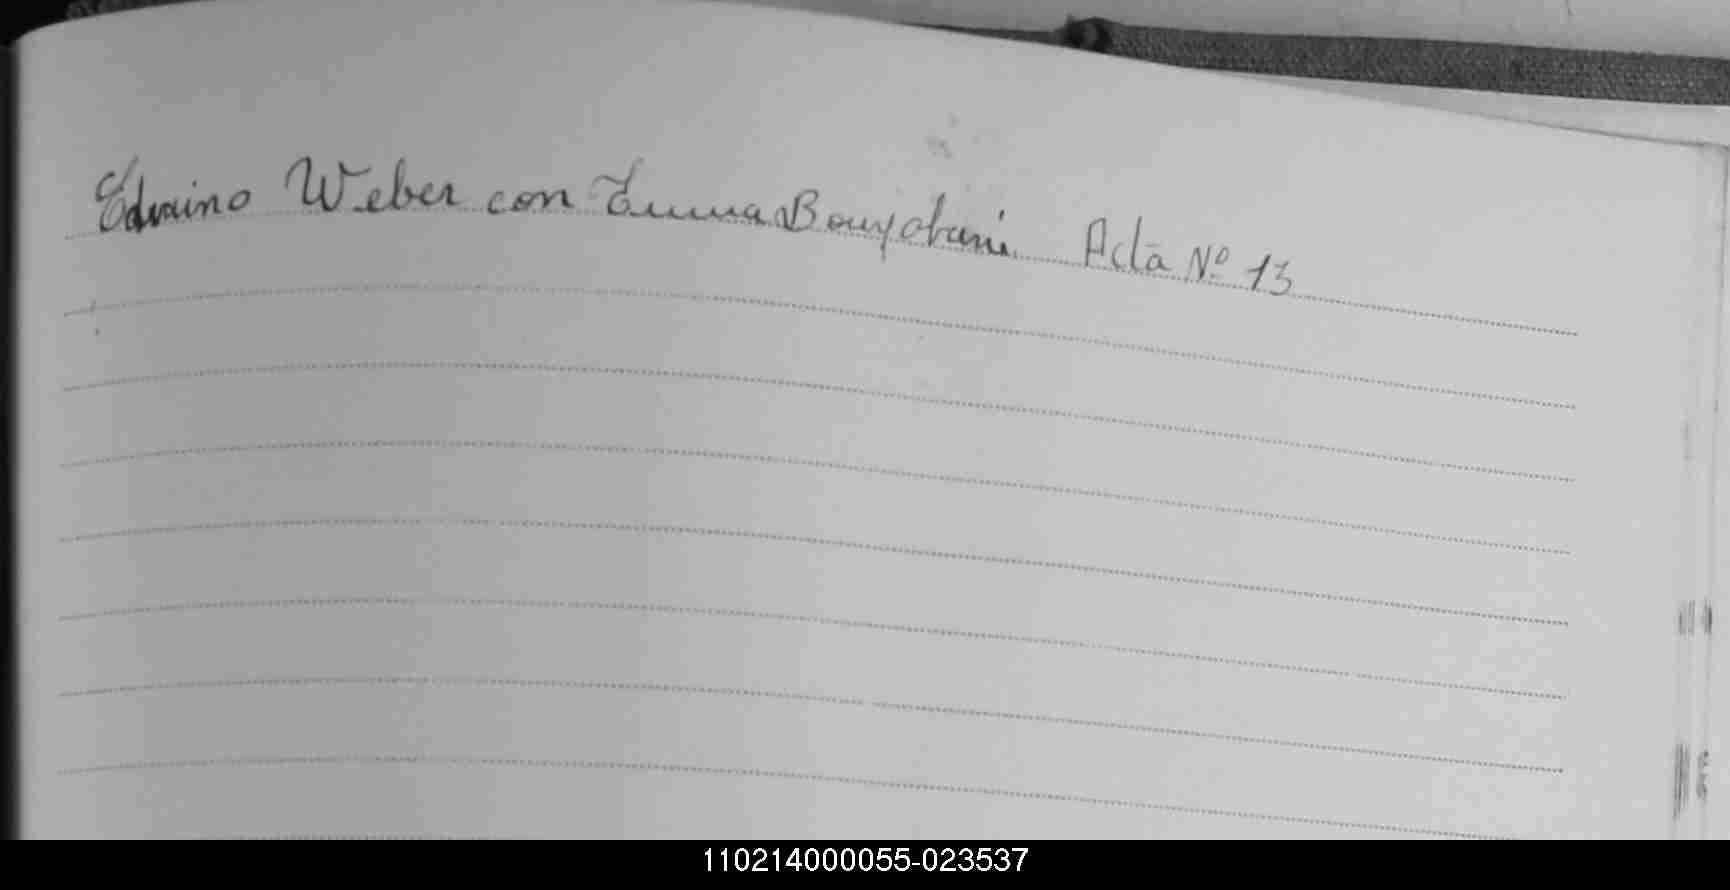 Edwino Weber con Emma Acta Nº 13
110214000055-023537